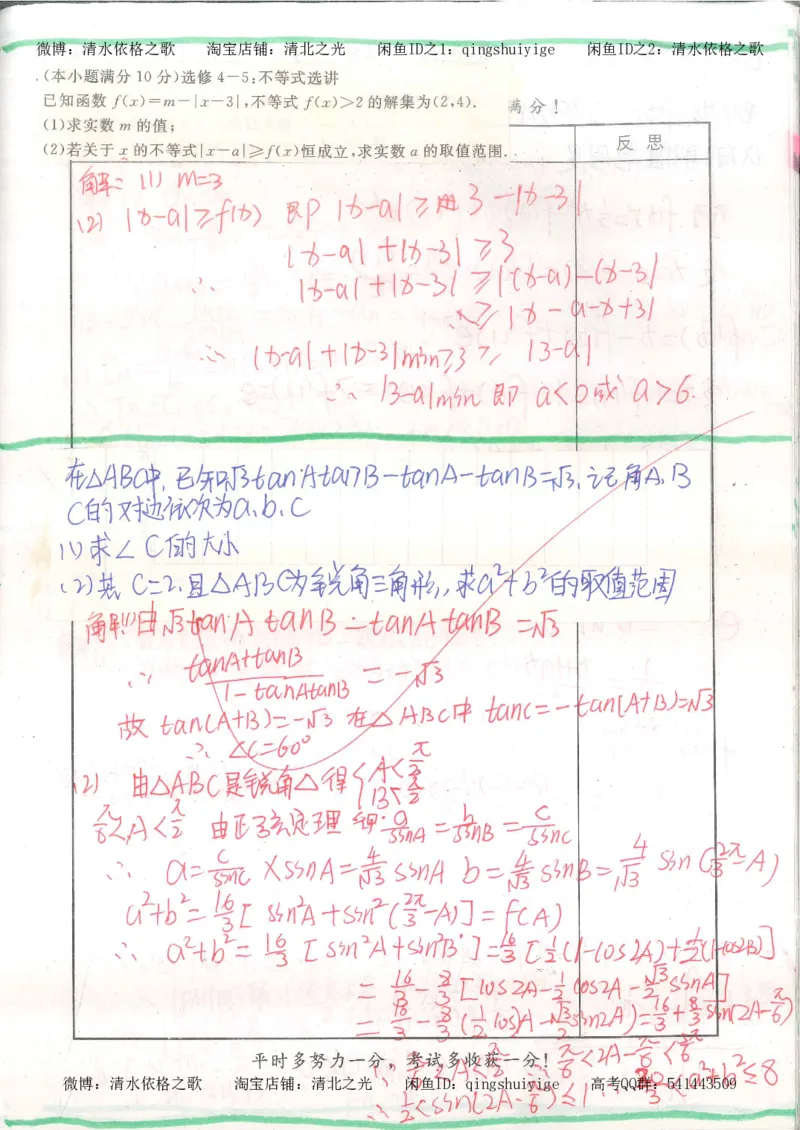 微博：清水依格之歌 淘宝店铺：清北之光 闲鱼ID之1：qingshuiyige 闲鱼ID之2：清水依格之歌
.(本小题满分10分)选修4-5:不等式选讲
已知函数 f(x)=m-|x-3|,不等式 f(x)>2的解集为(2,4).
满分!
(1)求实数 m 的值;
(2)若关于 x 的不等式|x-a|≥f(x)恒成立,求实数 a 的取值范围.
反 思
解: (1) m=3
(2) |x-a|≥f(x) 即 |x-a|≥ 3-|x-3|
|x-a|+|x-3|≥3
∴ |x-a|+|x-3|≥|(x-a)-(x-3|
≥|x-a-x+3|
∴ |x-a|+|x-3|min≥3≥ |3-a|
∴ |3-a|min 即 a<0或 a>6.
在△ABC中, 已知√3tanAtanB-tanA-tanB=√3, 记角A、B
C的对边依次为a、b、c
(1)求∠C的大小
(2)若 C=2.且△ABC为锐角三角形,求a²+b²的取值范围
解:(1)由√3tanA tanB-tanAtanB=√3
∴ (tanA+tanB)/(1-tanAtanB) = -√3
故 tan(A+B)=-√3 在△ABC中 tanC=-tan(A+B)=√3
∴ ∠C=60°
(2) 由△ABC是锐角△得{A<π/2 B<π/2
π/6<A<π/2 由正弦定理 得: a/sinA = b/sinB = c/sinC
∴ a= c/sinC × sinA = 4/√3 sinA b= 4/√3 sinB = 4/√3 sin(2π/3-A)
a²+b²= 16/3 [ sin²A+sin²(2π/3-A)] = f(A)
∴ a²+b²= 16/3 [ sin²A+sin²B ]=16/3 [1/2(1-cos2A)+1/2(1-cos2B)]
= 16/3 - 8/3 [cos2A-1/2 cos2A-√3/2 sin2A]
= 16/3 - 8/3 (1/2 cos2A-√3/2 sin2A)=16/3+8/3 sin(2A-π/6)
平时多努力一分，考试多收获一分！
π/6<2A-π/6<5π/6
微博：清水依格之歌 淘宝店铺：清北之光 闲鱼ID：qingshuiyige 高考QQ群：541443509
∴ 1/2<sin(2A-π/6)≤1 <a²+b²≤8